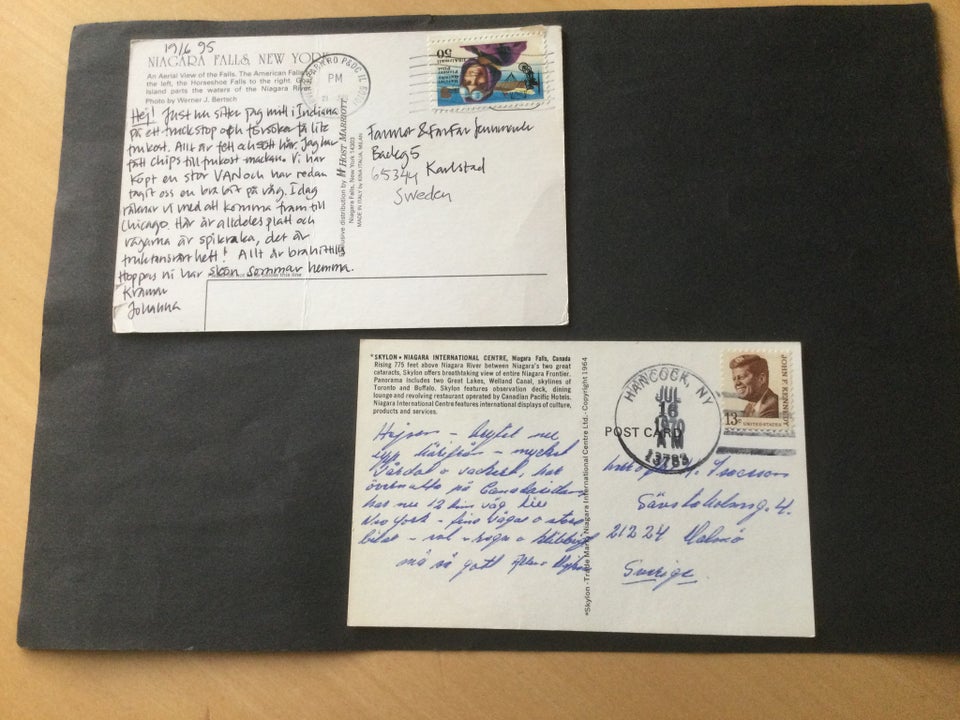 19/6 95
NIAGARA FALLS, NEW YORK
An Aerial View of the Falls. The American Falls
the left, the Horseshoe Falls to the right. 
Island parts the waters of the Niagara River
Photo by Werner J. Bertsch
Hej! Just nu sitter jag mitt i Indiana
på ett truckstop och försöker få lite
frukost. Allt är fett och sött här. Jag har
fått chips till frukost mackan. Vi har
köpt en stor VAN och har redan
tagit oss en bra bit på väg. Idag
räknar vi med att komma fram till
Chicago. Här är alldeles platt och
vägarna är spikraka, det är
fruktansvärt hett! Allt är bra hittills
Hoppas ni har skön sommar hemma.
Kramar
Johanna
PM
50
distribution by HOST MARRIOTT
Niagara Falls, New York 14303
MADE IN ITALY by KINA ITALIA, MILAN
Farmor & Farfar
65344 Karlstad
Sweden
"SKYLON • NIAGARA INTERNATIONAL CENTRE, Niagara Falls, Canada
Rising 775 feet above Niagara River between Niagara's two great
cataracts, Skylon offers breathtaking view of entire Niagara Frontier.
Panorama includes two Great Lakes, Welland Canal, skylines of
Toronto and Buffalo. Skylon features observation deck, dining
lounge and revolving restaurant operated by Canadian Pacific Hotels.
Niagara International Centre features international displays of culture,
products and services.
- mycket
o vackert, har
övernattat på Canadasidan
har nu 12 tim väg till
New York - fina vägar o stora
bilar - sol -
må så gott
*Skylon - Trade Mark Niagara International Centre Ltd. - Copyright 1964
HANCOCK, NY
JUL
16
1970
AM
13783
JOHN F. KENNEDY
13c UNITED STATES
POST CARD
21224 Malmö
Sverige